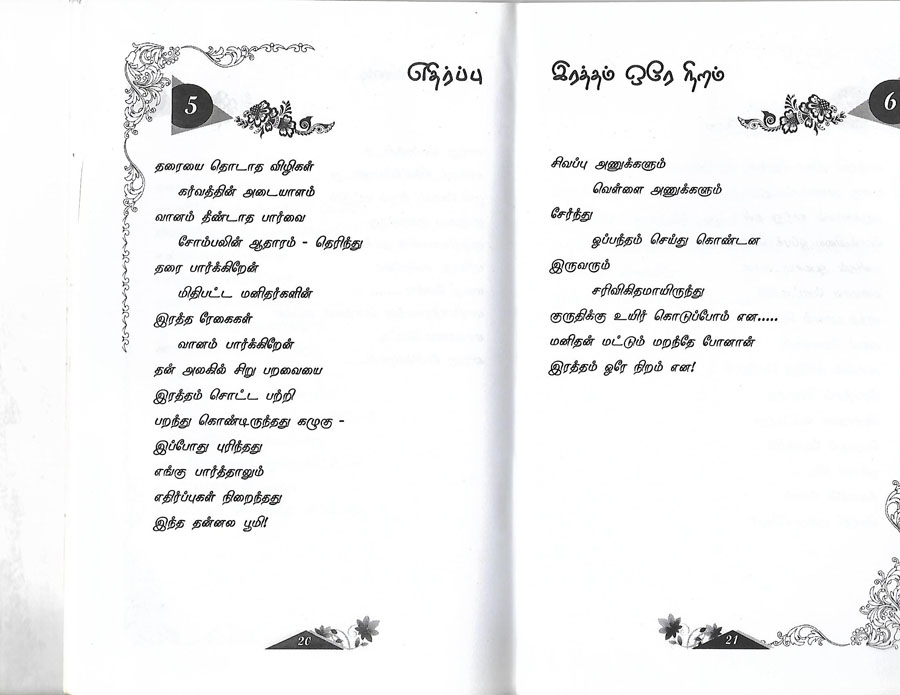 5
எதிர்ப்பு
தரையை தொடாத விழிகள்
கர்வத்தின் அடையாளம்
வானம் தீண்டாத பார்வை
சோம்பலின் ஆதாரம் - தெரிந்து
தரை பார்க்கிறேன்
மிதிபட்ட மனிதர்களின்
இரத்த ரேகைகள்
வானம் பார்க்கிறேன்
தன் அலகில் சிறு பறவையை
இரத்தம் சொட்ட பற்றி
பறந்து கொண்டிருந்தது கழுகு -
இப்போது புரிந்தது
எங்கு பார்த்தாலும்
எதிர்ப்புகள் நிறைந்தது
இந்த தன்னல பூமி!
20
இரத்தம் ஒரே நிறம்
6
சிவப்பு அணுக்களும்
வெள்ளை அணுக்களும்
சேர்ந்து
ஒப்பந்தம் செய்து கொண்டன
இருவரும்
சரிவிகிதமாயிருந்து
குருதிக்கு உயிர் கொடுப்போம் என.....
மனிதன் மட்டும் மறந்தே போனான்
இரத்தம் ஒரே நிறம் என!
21